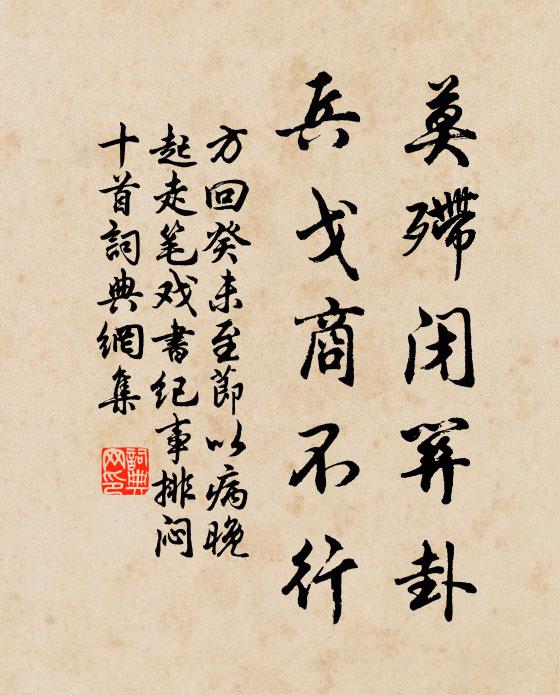 莫殢闭關卦
兵戈商不行
方回癸未至節以病晚
起走笔戏書纪事排闷
十首詞典網集
詞典
网印